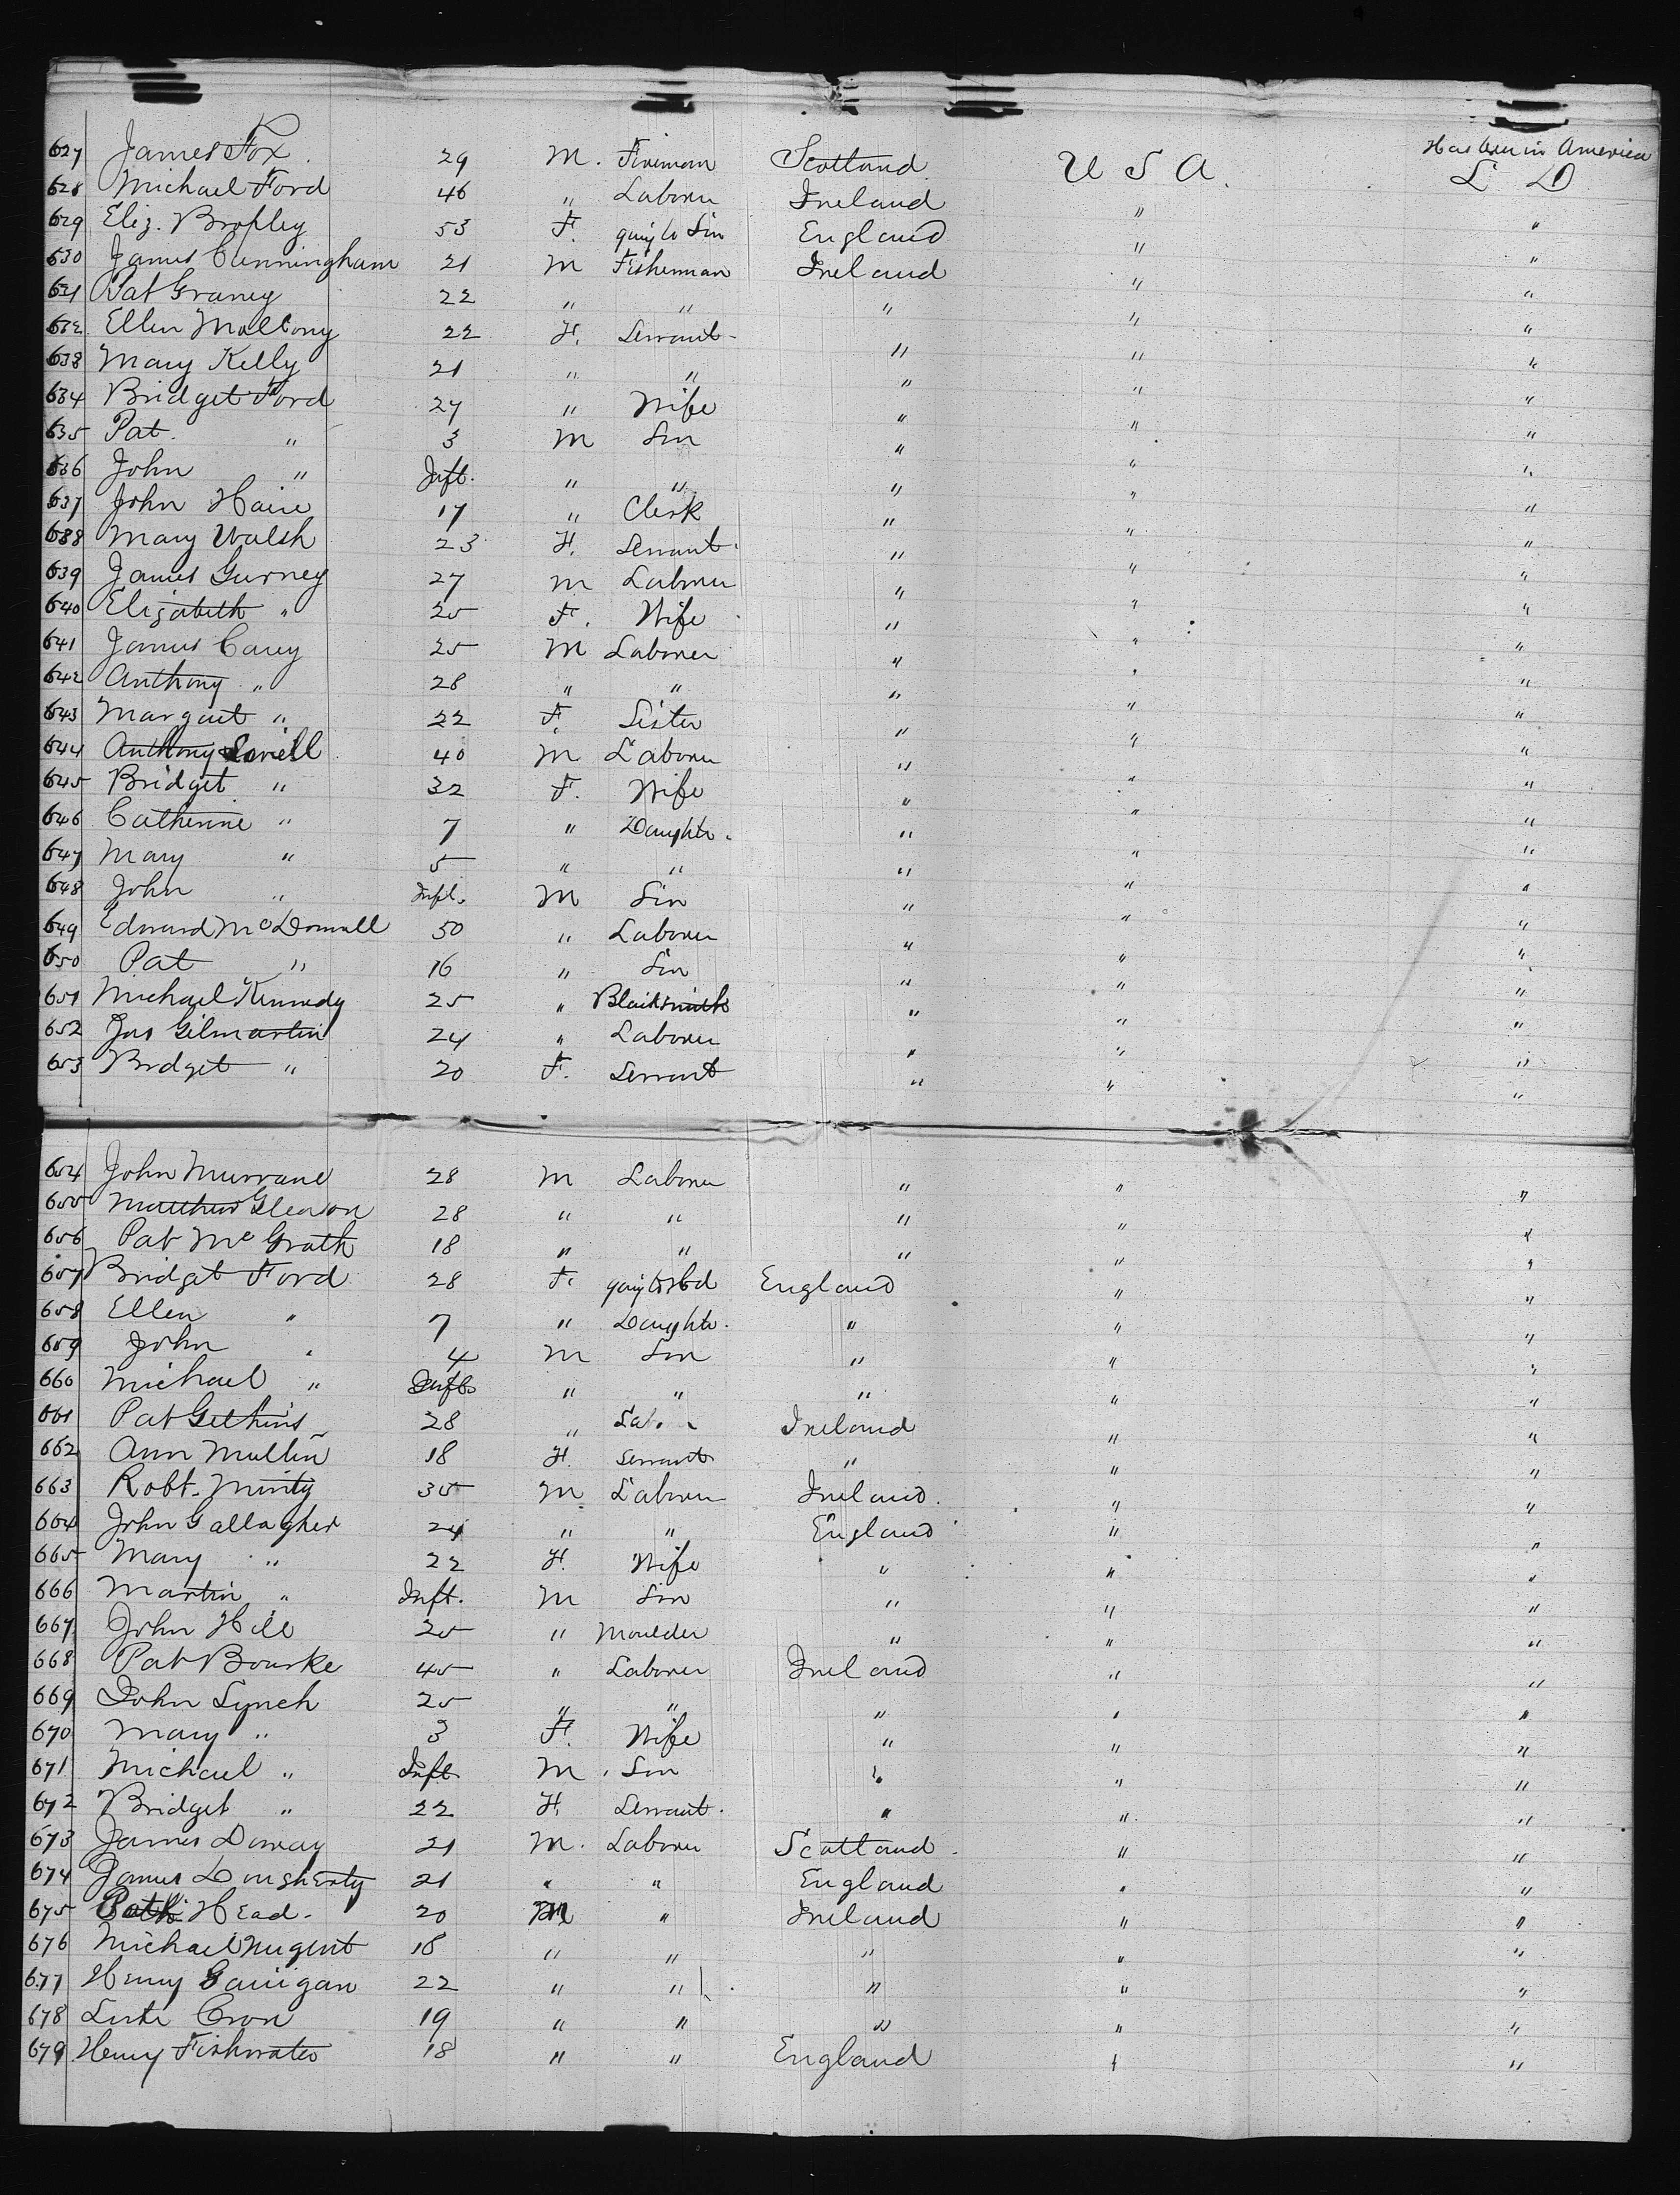 627 James Fox 29 M. Fireman Scotland. U S A. Has been in America
628 Michael Ford 46 " Laborer Ireland " L D
629 Eliz. Brophy 53 F. going to Son England " "
630 James Cunningham 21 M Fisherman Ireland " "
631 Pat Graney 22 " " " " "
632 Ellen 22 F. Servant " " "
633 Mary Kelly 21 " " " " "
634 Bridget Ford 27 " Wife " " "
635 Pat. " 3 M Son " " "
636 John " Inft. " " " " "
637 John Haire 17 " Clerk " " "
638 Mary Walsh 23 F. Servant " " "
639 James Gurney 27 M Laborer " " "
640 Elizabeth " 25 F. Wife " " "
641 James Carey 25 M Laborer " " "
642 Anthony " 28 " " " " "
643 Margaret " 22 F. Sister " " "
644 Anthony 40 M Laborer " " "
645 Bridget " 32 F. Wife " " "
646 Catherine " 7 " Daughtr. " " "
647 Mary " 5 " " " " "
648 John " Inft. M Son " " "
649 Edward McDonnell 50 " Laborer " " "
650 Pat " 16 " Son " " "
651 Michael Kennedy 25 " Blacksmith " " "
652 Jas Gilmartin 24 " Laborer " " "
653 Bridget " 20 F. Servant " " "
654 John Murrane 28 M Laborer " " "
655 Matthew Gleason 28 " " " " "
656 Pat McGrath 18 " " " " "
657 Bridget Ford 28 F. going to Hbd England " "
658 Ellen " 7 " Daughtr. " " "
659 John " 4 M Son " " "
660 Michael " Inft. " " " " "
661 Pat 28 " Lab. Ireland " "
662 Ann Mullin 18 F. Servant " " "
663 Robt. Minty 35 M Laborer Ireland. " "
664 John Gallagher 24 " " England " "
665 Mary " 22 F. Wife " " "
666 Martin " Inft. M Son " " "
667 John Hill 25 " Moulder " " "
668 Pat Bourke 45 " Laborer Ireland " "
669 John Lynch 25 " " " " "
670 Mary " 3 F. Wife " " "
671 Michael " Inft. M. Son " " "
672 Bridget " 22 F. Servant. " " "
673 James 21 M. Laborer Scotland. " "
674 James Dougherty 21 " " England " "
675 Patk Head. 20 M " Ireland " "
676 Michael Nugent 18 " " " " "
677 Henry 22 " " " " "
678 Cron 19 " " " " "
679 Henry Fishwater 18 " " England " "